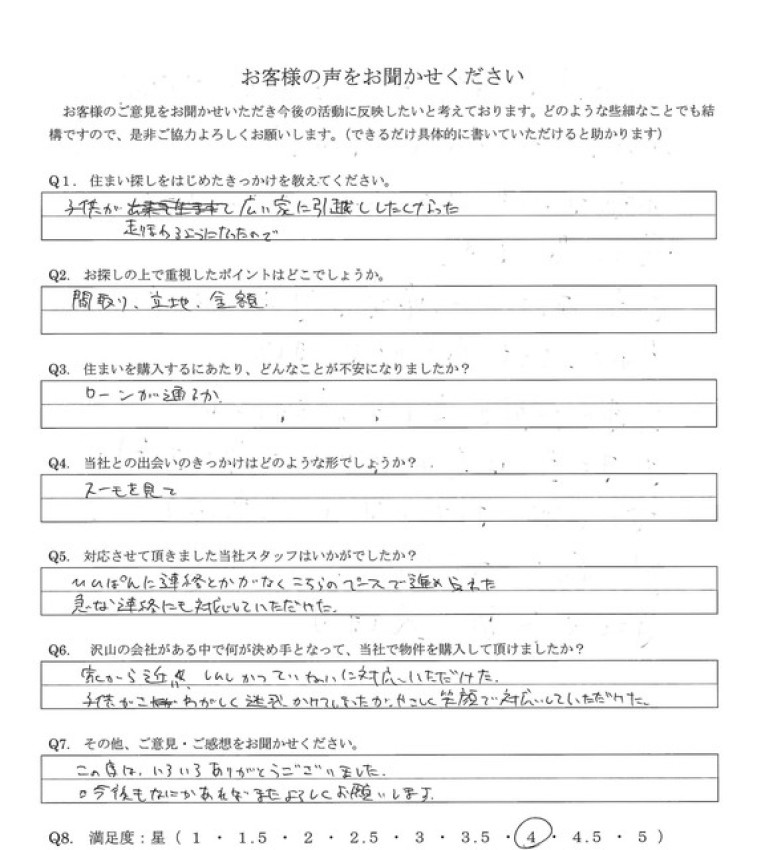 お客様の声をお聞かせください
お客様のご意見をお聞かせいただき今後の活動に反映したいと考えております。どのような些細なことでも結
構ですので、是非ご協力よろしくお願いします。（できるだけ具体的に書いていただけると助かります）
Q1. 住まい探しをはじめたきっかけを教えてください。
子供が 広い家に引越ししたくなった
走りまわるようになったので
Q2. お探しの上で重視したポイントはどこでしょうか。
間取り、立地、金額
Q3. 住まいを購入するにあたり、どんなことが不安になりましたか？
ローンが通るか
Q4. 当社との出会いのきっかけはどのような形でしょうか？
スーモを見て
Q5. 対応させて頂きました当社スタッフはいかがでしたか？
ひんぱんに連絡とかがなくこちらのペースで進められた
急な連絡にも対応していただけた。
Q6. 沢山の会社がある中で何が決め手となって、当社で物件を購入して頂けましたか？
家から近
子供が わがしく迷惑かけてしまったが、やさしく笑顔で対応していただけた。
Q7. その他、ご意見・ご感想をお聞かせください。
この度は、いろいろありがとうございました。
今後もなにかあればまたよろしくお願いします。
Q8. 満足度：星（ 1 ・ 1.5 ・ 2 ・ 2.5 ・ 3 ・ 3.5 ・ 4 ・ 4.5 ・ 5 ）